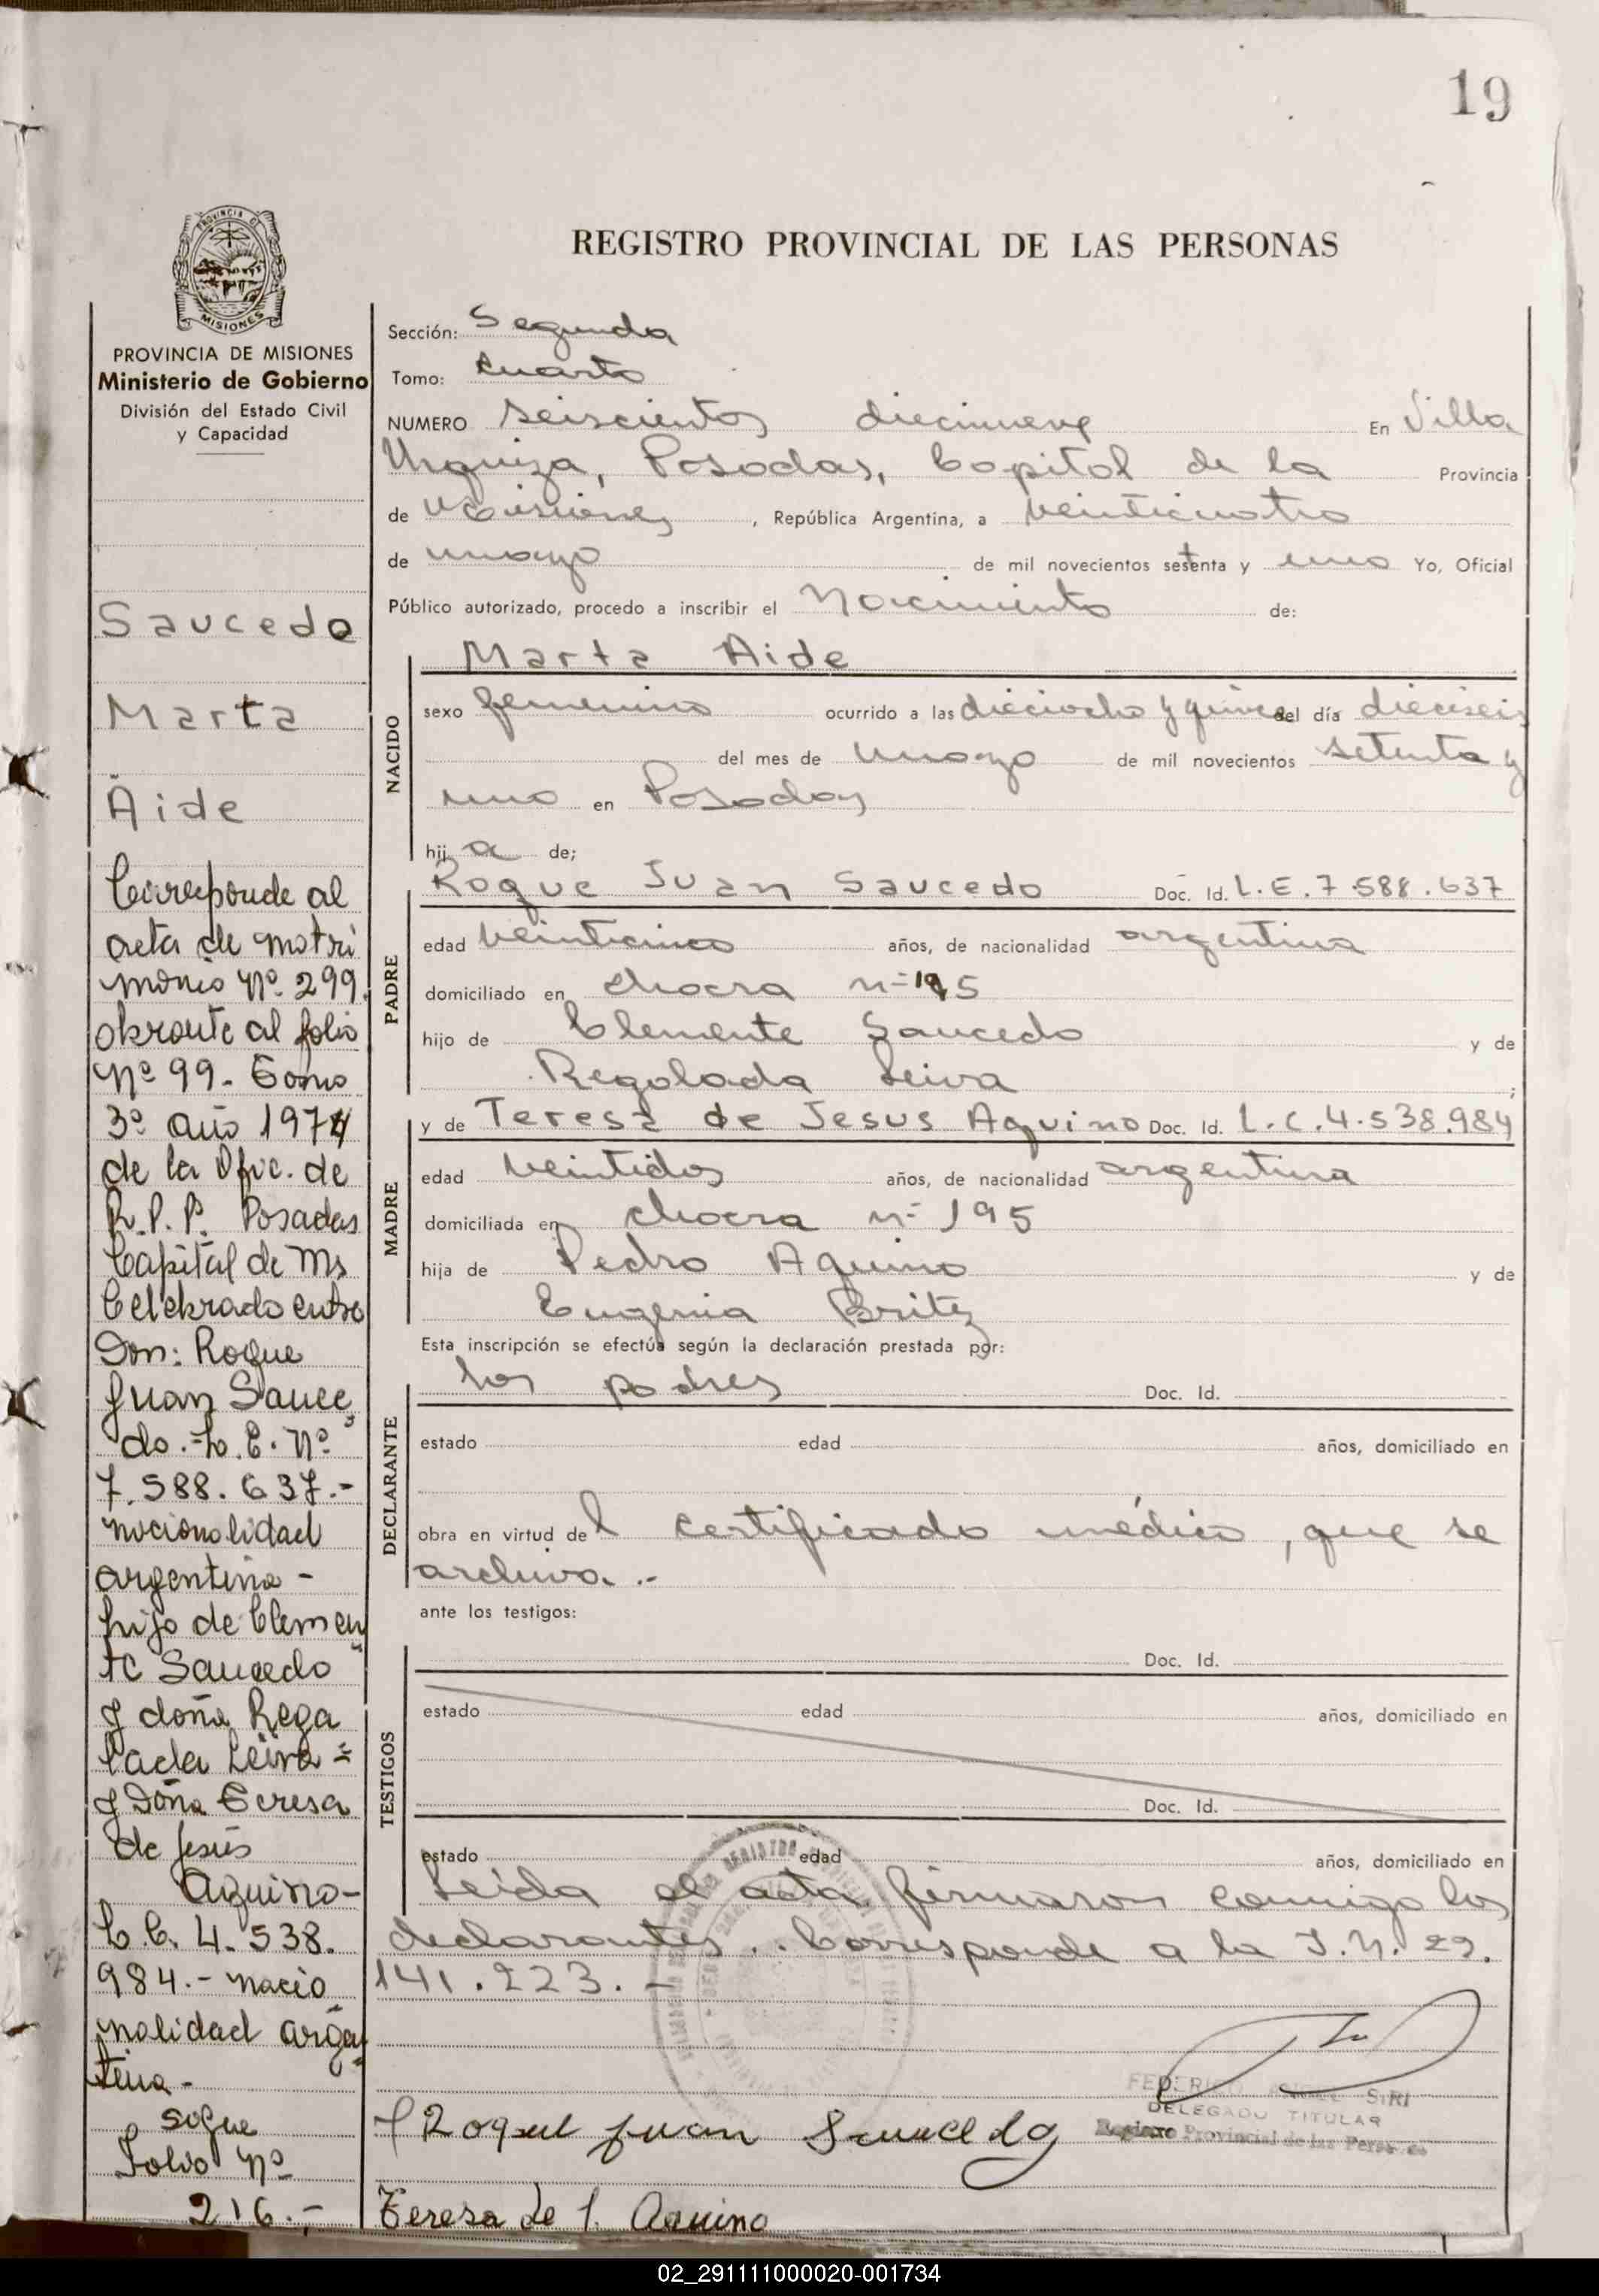 19
PROVINCIA DE
MISIONES
REGISTRO PROVINCIAL DE LAS PERSONAS
PROVINCIA DE MISIONES
Ministerio de Gobierno
División del Estado Civil
y Capacidad
Saucedo
Marta
Aide
Corresponde al
acta de matri
monio Nº 299.
obrante al folio
Nº 99- Tomo
3º año 1974
de la Ofic. de
R.P.P. Posadas
Capital de Ms
Celebrado entre
Don: Roque
Juan Sauce
do.- L.E. Nº
7.588.637.-
nacionalidad
argentina -
hijo de Clemen
te Saucedo
y doña Rega
lada Leiva =
y Doña Teresa
de Jesús
Aquino-
L.C. 4.538.
984.- nacio
nalidad argen
tina-
sigue
Folio Nº
216.-
Sección: Segunda
Tomo: Cuarto
NUMERO seiscientos diecinueve En Villa
Urquiza, Posadas, Capital de la Provincia
de Misiones, República Argentina, a veinticuatro
de mayo de mil novecientos setenta y uno Yo, Oficial
Público autorizado, procedo a inscribir el Nacimiento de:
NACIDO
Marta Aide
sexo femenino ocurrido a las dieciocho y quince del día dieciseis
del mes de mayo de mil novecientos setenta y
uno en Posadas
hija de;
PADRE
Roque Juan Saucedo Doc. Id. L.E.7.588.637
edad veinticinco años, de nacionalidad argentina
domiciliado en chacra nº 195
hijo de Clemente Saucedo y de
Regalada Leiva ;
MADRE
y de Teresa de Jesus Aquino Doc. Id. L.C.4.538.984
edad veintidos años, de nacionalidad argentina
domiciliada en chacra nº 195
hija de Pedro Aquino y de
Eugenia Britez
Esta inscripción se efectúa según la declaración prestada por:
DECLARANTE
los padres Doc. Id.
estado edad años, domiciliado en
obra en virtud del certificado médico, que se
archiva.-
ante los testigos:
TESTIGOS
Doc. Id.
estado edad años, domiciliado en
Doc. Id.
estado edad años, domiciliado en
Leida el acta, firmaron conmigo los
declarantes.. Corresponde a la I.N. 22.
141.223.-
FEDERICO SIRI
DELEGADO TITULAR
Registro Provincial de las Personas
Roque Juan Saucedo
Teresa de J. Aquino
02_291111000020-001734